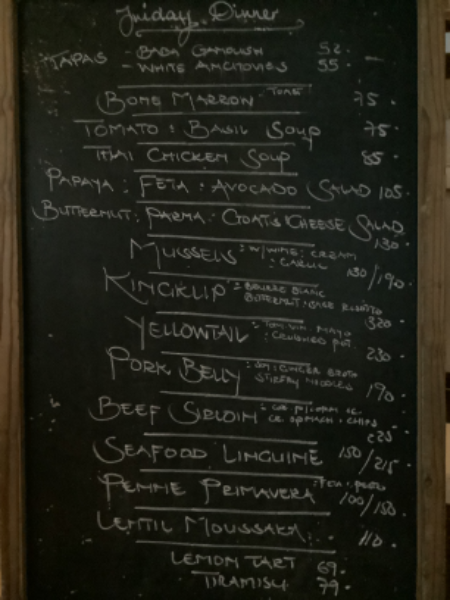 Friday Dinner
TAPAS - BABA GANOUSH 52.-
- WHITE ANCHOVIES 55.
BONE MARROW TOAST 75.
TOMATO : BASIL SOUP 75.
THAI CHICKEN SOUP 85.
PAPAYA : FETA : AVOCADO SALAD 105.
BUTTERNUT : PARMA : GOATS CHEESE SALAD
130.
MUSSELS : W/WINE : CREAM
: GARLIC 130/190.
KINGKLIP : BEURRE BLANC
BUTTERNUT : SAGE RISOTTO
320.
YELLOWTAIL : TOM. VIN. MAYO
: CRUSHED POT.
230.
PORK BELLY : SOY : GINGER BROTH
STIRFRY NOODLES
190.
BEEF SIRLOIN
SPINACH + CHIPS
225
SEAFOOD LINGUINE 150/215.
PENNE PRIMAVERA : FETA : PESTO
100/150.
LENTIL MOUSSAKA 110.
LEMON TART 69.
TIRAMISU 79.